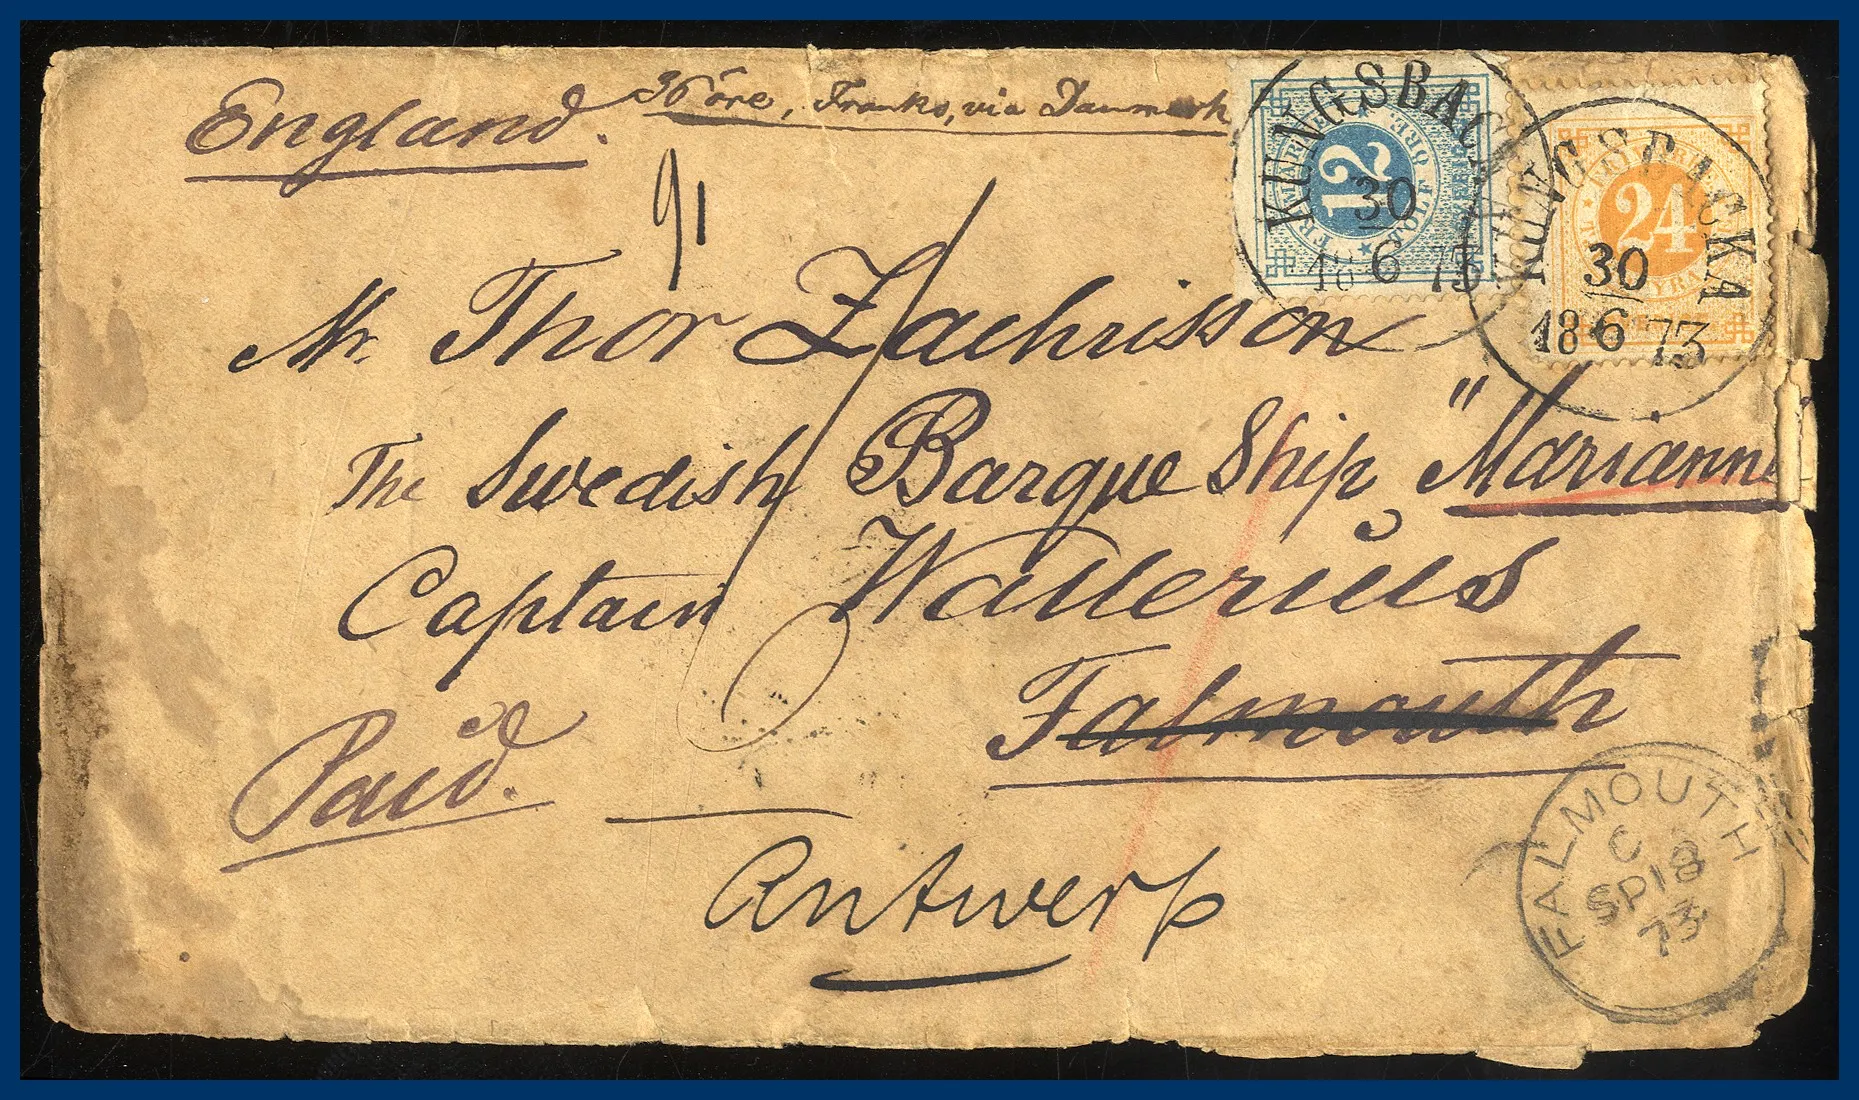 England.
36 öre, Franko, via Danmark
91
KUNGSBACKA
30
18 6 73
12
TOLF ÖRE.
KUNGSBACKA
30
18 6 73
24
Mr. Thor Zachrisson
The Swedish Barque Ship "Marianne
Captain Wallerius
Falmouth
Paid.
Antwerp
FALMOUTH
C
SP18
73